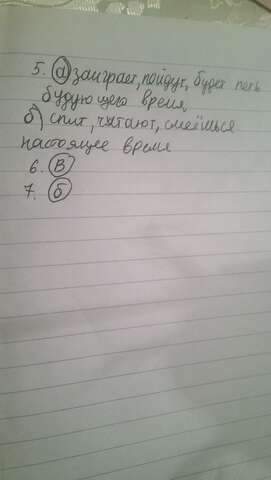 5. а) заиграет, пойдут, будет петь
будующего время,
б) спит, читают, смеёшься
настоящее время
6. В
7. б